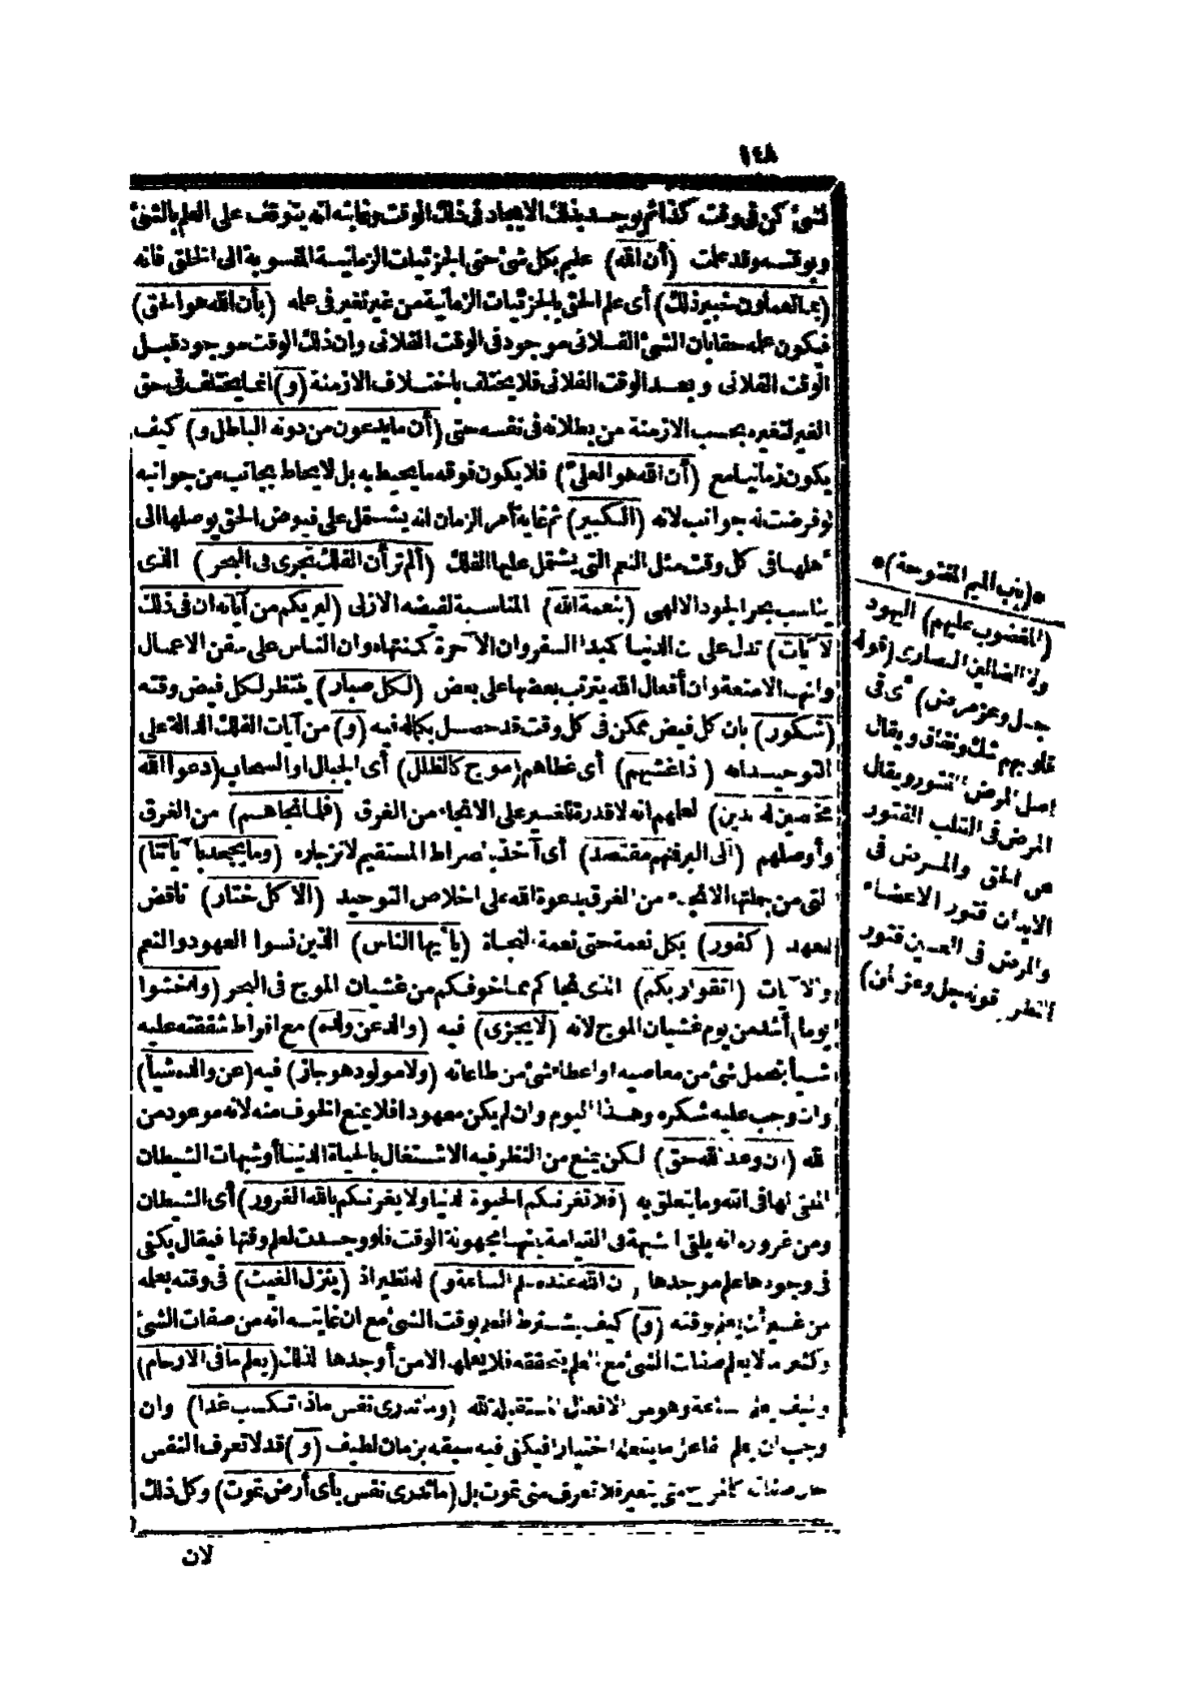 ١٤٨
لشئ كن فى وقت كذا ثم يوجد بذلك الايجاد فى ذلك الوقت وغايته انه يتوقف على العلم بالشئ
وبوقته وقد علمت (أن الله) عليم بكل شئ حتى الجزئيات الزمانية المنسوبة الى الخلق فانه
(بما تعملون خبير ذلك) أى علم الحق بالجزئيات الزمانية من غير تغير فى علمه (بأن الله هو الحق)
فيكون علمه حقا بان الشئ الفلانى موجود فى الوقت الفلانى وان ذلك الوقت موجود قبل
الوقت الفلانى وبعد الوقت الفلانى فلا يختلف باختلاف الازمنة (و) انما يختلف فى حق
الغير لتغيره بحسب الازمنة من بطلانه فى نفسه حتى (أن ما يدعون من دونه الباطل و) كيف
يكون زمانيا مع (أن الله هو العلىّ) فلا يكون فوقه ما يحيط به بل لا يحاط بجانب من جوانبه
لو فرضت له جوانب لانه (الكبير) ثم غاية أمر الزمان انه يشتمل على فيوض الحق يوصلها الى
أهلها فى كل وقت مثل النعم التى يشتمل عليها الفلك (ألم تر أن الفلك تجرى فى البحر) الذى
يناسب بحر الجود الالهى (بنعمة الله) المناسبة لفيضه الازلى (ليريكم من آياته ان فى ذلك
لآيات) تدل على ن الدنيا كبدا السفر وان الآخرة كمنتهاه وان الناس على سفن الاعمال
وانهم الامتعة وان أفعال الله يترتب بعضها على بعض (لكل صبار) ينتظر لكل فيض وقته
(شكور) بان كل فيض ممكن فى كل وقت قد حصل بكماله فيه (و) من آيات الفلك الدالة على
التوحيد انه (اذا غشيهم) أى غطاهم (موج كالظلل) أى الجبال او السحاب (دعوا الله
مخلصين له الدين) لعلمهم انه لا قدرة لغيره على الانجاء من الغرق (فلما نجاهم) من الغرق
وأوصلهم (الى البر فمنهم مقتصد) أى آخذ بصراط المستقيم لانزجاره (وما يجحد بآياتنا)
لتى من جملتها الانجاء من الغرق بدعوة الله على اخلاص التوحيد (الا كل ختار) ناقض
لعهد (كفور) بكل نعمة حتى نعمة النجاة (يا أيها الناس) الذين نسوا العهود والنعم
والآيات (اتقوا ربكم) الذى نجاكم مما خوفكم من غشيان الموج فى البحر (واخشوا
يوما) أشد من يوم غشيان الموج لانه (لا يجزى) فيه (والد عن ولده) مع افراط شفقته عليه
شيأ بتحمل شئ من معاصيه او اعطاء شئ من طاعاته (ولا مولود هو جاز) فيه (عن والده شيأ)
وان وجب عليه شكره وهذا اليوم وان لم يكن معهودا فلا يمنع الخوف منه لانه موعود من
لله (ان وعد الله حق) لكن يمنع من النظر فيه الاشتغال بالحياة الدنيا أو شبهات الشيطان
الملقى لها فى الله وما يتعلق به (فلا تغرنكم الحيوة الدنيا ولا يغرنكم بالله الغرور) أى الشيطان
ومن غروره انه يلقى ا شبهة فى القيامة بانها مجهولة الوقت فلو وجدت لعلم وقتها فيقال يكفى
فى وجودها علم موجدها (ان الله عنده علم الساعة و) له نظير اذ (ينزل الغيث) فى وقته بعلمه
من غير أن يعلم وقته (و) كيف يشترط العلم بوقت الشئ مع ان غايته انه من صفات الشئ
وكثير مما لا يعلم صفات الشئ مع العلم بتحققه فلا يعلمها الا من أوجدها لذلك (يعلم ما فى الارحام)
وكيف يعلم ساعة وهو من الافعال المستقبلة لله (وما تدرى نفس ماذا تكسب غدا) وان
وجب ان يعلم فاعل ما يفعله اختيارا فيكفى فيه سبقه بزمان لطيف (و) قد لا تعرف النفس
متى يتغير فلا تعرف متى تموت بل (ما تدرى نفس بأى أرض تموت) وكل ذلك
لان
*(باب الميم المفتوحة)*
(المغضوب عليهم) اليهود
ولا الضالين النصارى (قوله
جل وعز مرض) أى فى
قلوبهم شك ونفاق ويقال
اصل المرض الفتور ويقال
المرض فى القلب الفتور
عن الحق والمرض فى
الابدان فتور الاعضاء
والمرض فى العين فتور
النظر (قوله جل وعز المن)